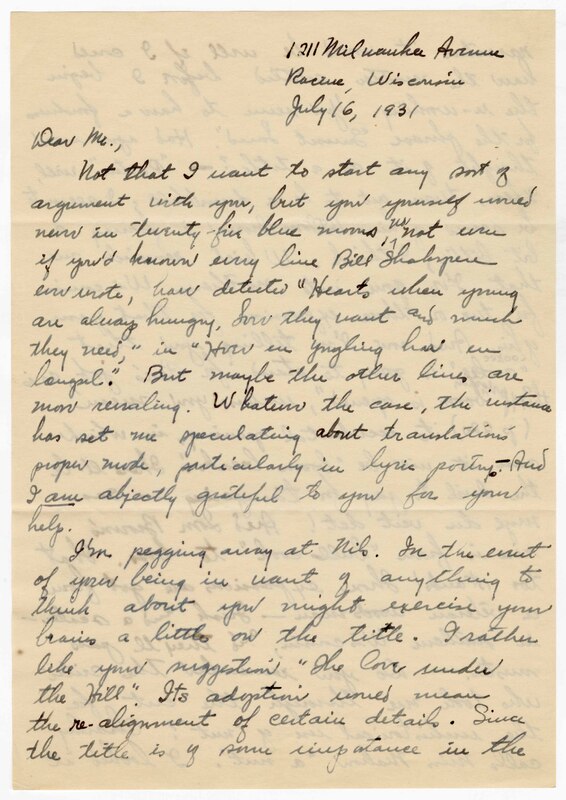 1211 Milwaukee Avenue
Racine, Wisconsin
July 16, 1931
Dear Mc.,
Not that I want to start any sort of
argument with you, but you yourself would
never in twenty-five blue moons, no, not even
if you'd known every line Bill Shakspere
ever wrote, have detected "Hearts when young
are always hungry, Love they want and much
they need," in "Hver en yngling har en
längtal." But maybe the other lines are
more revealing. Whatever the case, the instance
has set me speculating about translation's
proper mode, particularly in lyric poetry. And
I am abjectly grateful to you for your
help.
I'm pegging away at Nils. In the event
of your being in want of anything to
think about you might exercise your
brains a little on the title. I rather
like your suggestion "The Cove under
the Hill". Its adoption would mean
the re-alignment of certain details. Since
the title is of some importance in the